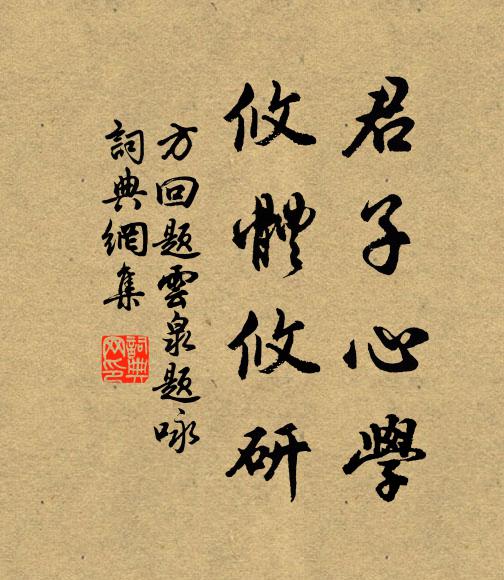 君子心學
攸體攸研
方回題雲泉題咏
詞典網集
詞典
网印